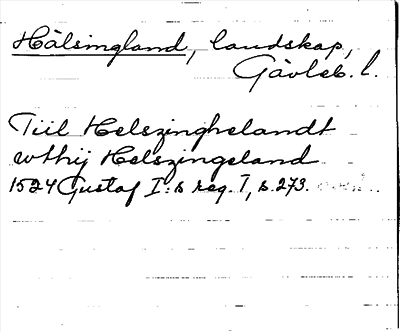 Hälsingland, landskap,
Gävleb. l.
Tiil Helszinghelandt
wthij Helszingeland
1524 Gustaf I:s reg. I, s. 273.